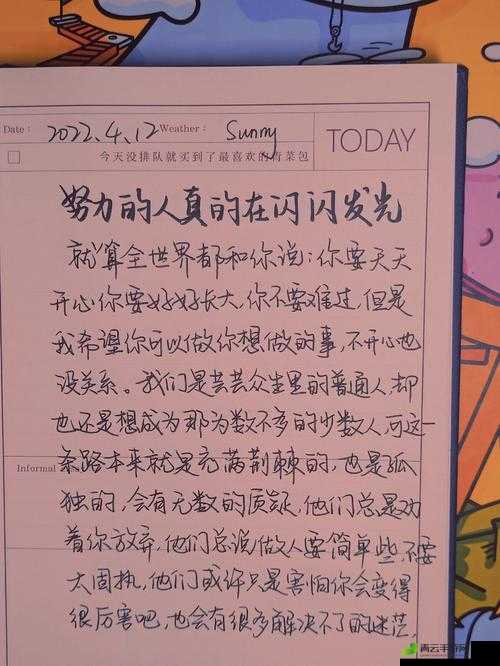 Date: 2022.4.12 Weather: Sunny
TODAY
今天没排队就买到了最喜欢的青菜包
努力的人真的在闪闪发光
就算全世界都和你说：你要天天
开心你要好好长大，你不要难过，但是
我希望你可以做你想做的事，不开心也
没关系。我们是芸芸众生里的普通人，却
也还是想成为那为数不多的少数人，可这一
Informal
条路本来就是充满荆棘的，也是孤
独的，会有无数的质疑，他们总是劝
着你放弃，他们总说做人要简单些，不要
太固执，他们或许只是害怕你会变得
很厉害吧，也会有很多解决不了的迷茫，
青云手游网